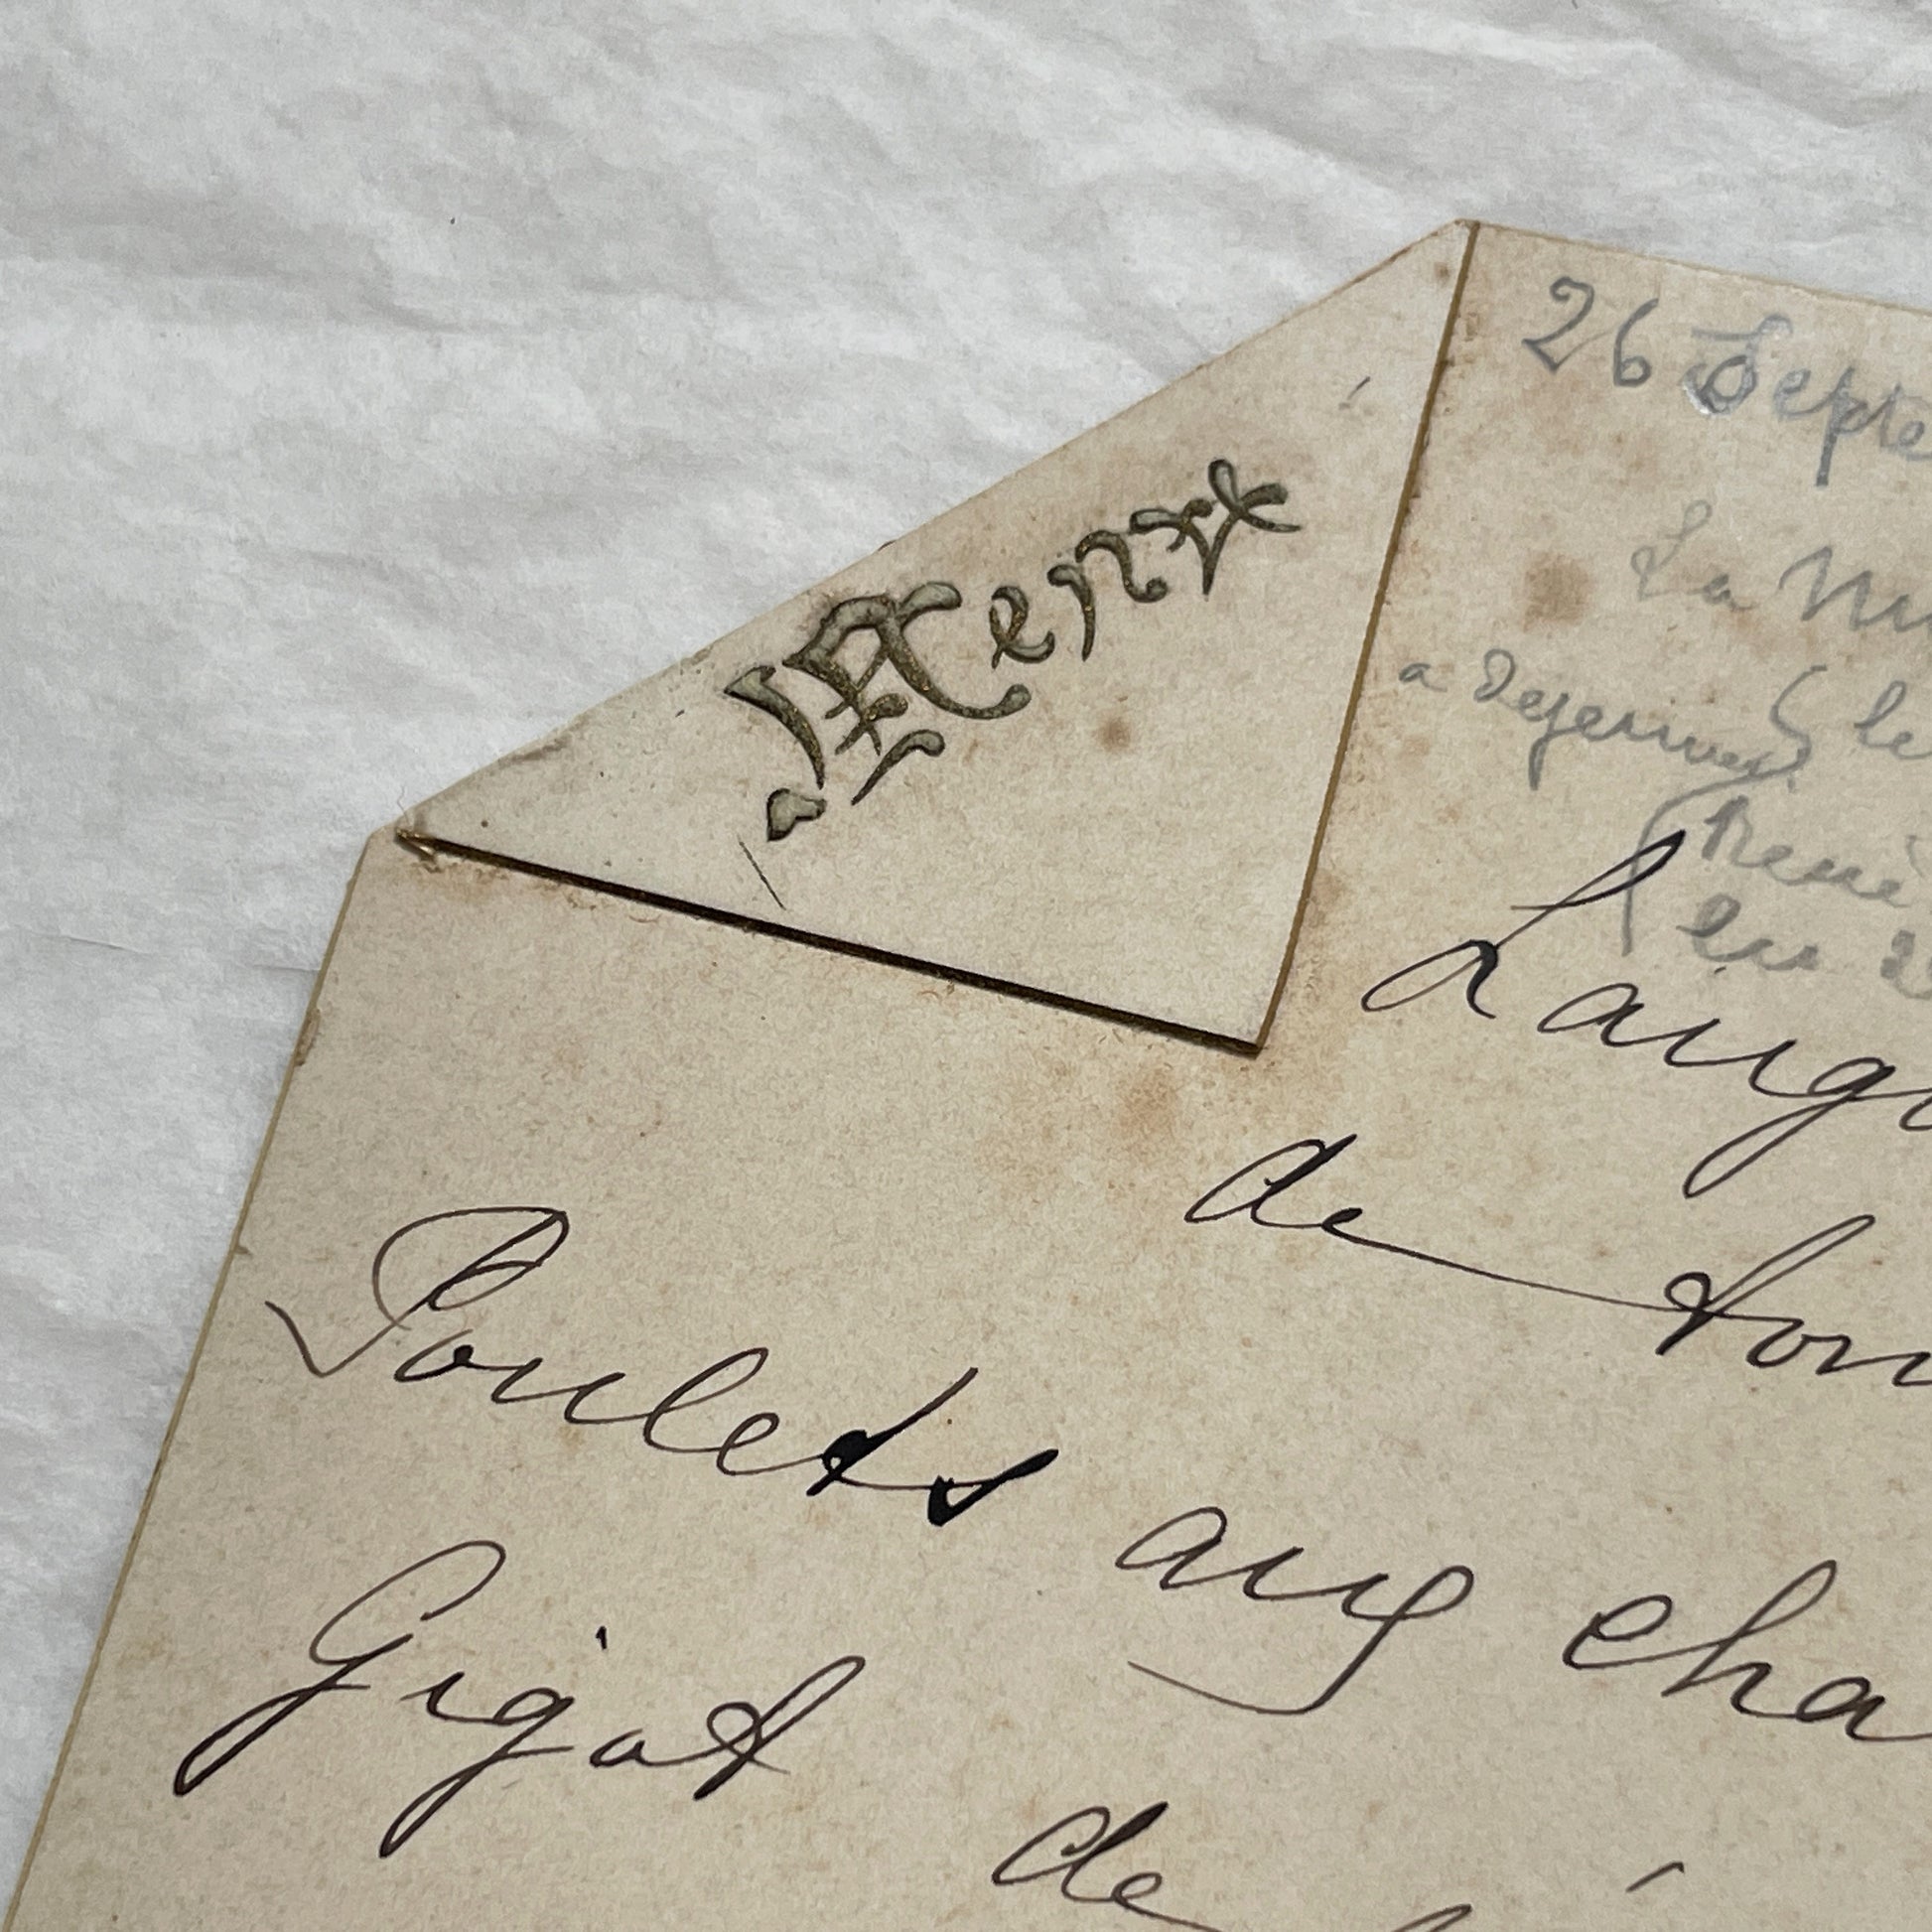 Menu
26 Septe
La
a dejeuner le
René
Lang
de
Poulets aux cha
Gigot
de